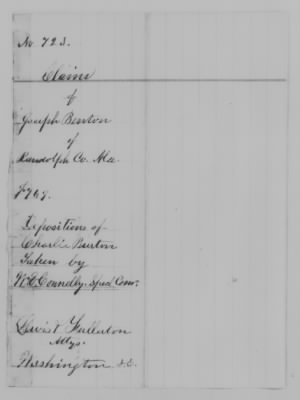 No. 723.
Claim
of
Joseph Benton
of
Randolph Co. Ala.
$769.
Depositions of
Charlie Burton
Taken by
Connelly, Spcl. Com.
Lewis & Fullerton
Attys.
Washington D.C.